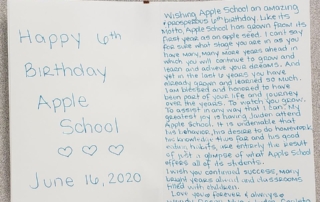 Happy 6th
Birthday
Apple
School
June 16, 2020
Wishing Apple School an amazing
& prosperous 6th birthday. Like its
Motto, Apple School has grown from its
first year as an apple seed. I can't say
for sure what stage you are in as you
have many, many more years ahead in
which you will continue to grow and
learn and achieve your dreams. And
yet in the last 6 years you have
already grown and learned so much.
I am blessed and honored to have
been part of your life and journey
over the years. To watch you grow.
To assist in any way that I can. My
greatest joy is having attend
Apple School. It is undeniable that
his behavior, his desire to do homework,
his knowledge thus far and his good
habits, are entirely the result
of just a glimpse of what Apple School
offers all of its students.
I wish you continued success, many
years and classrooms
filled with children.
Love you forever & always